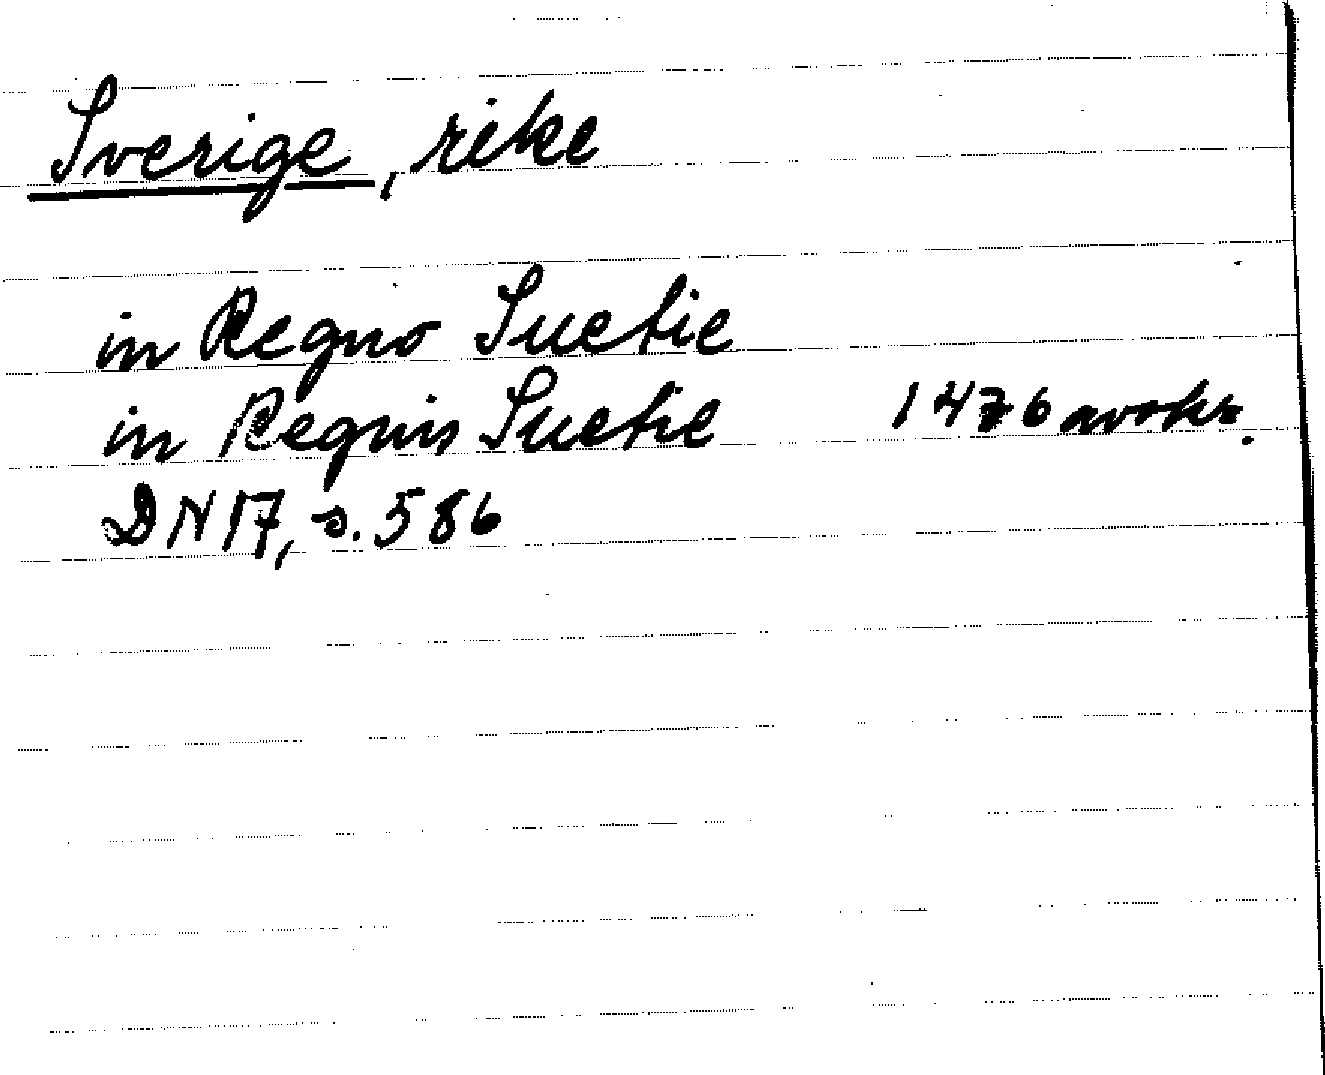 Sverige, rike
in Regno Suetie
in Regnis Suetie 1476 avskr.
DN 17, s. 586